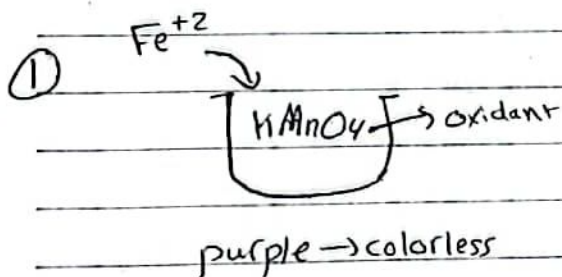 Fe+2
①
KMnO4 → oxidant
purple → colorless